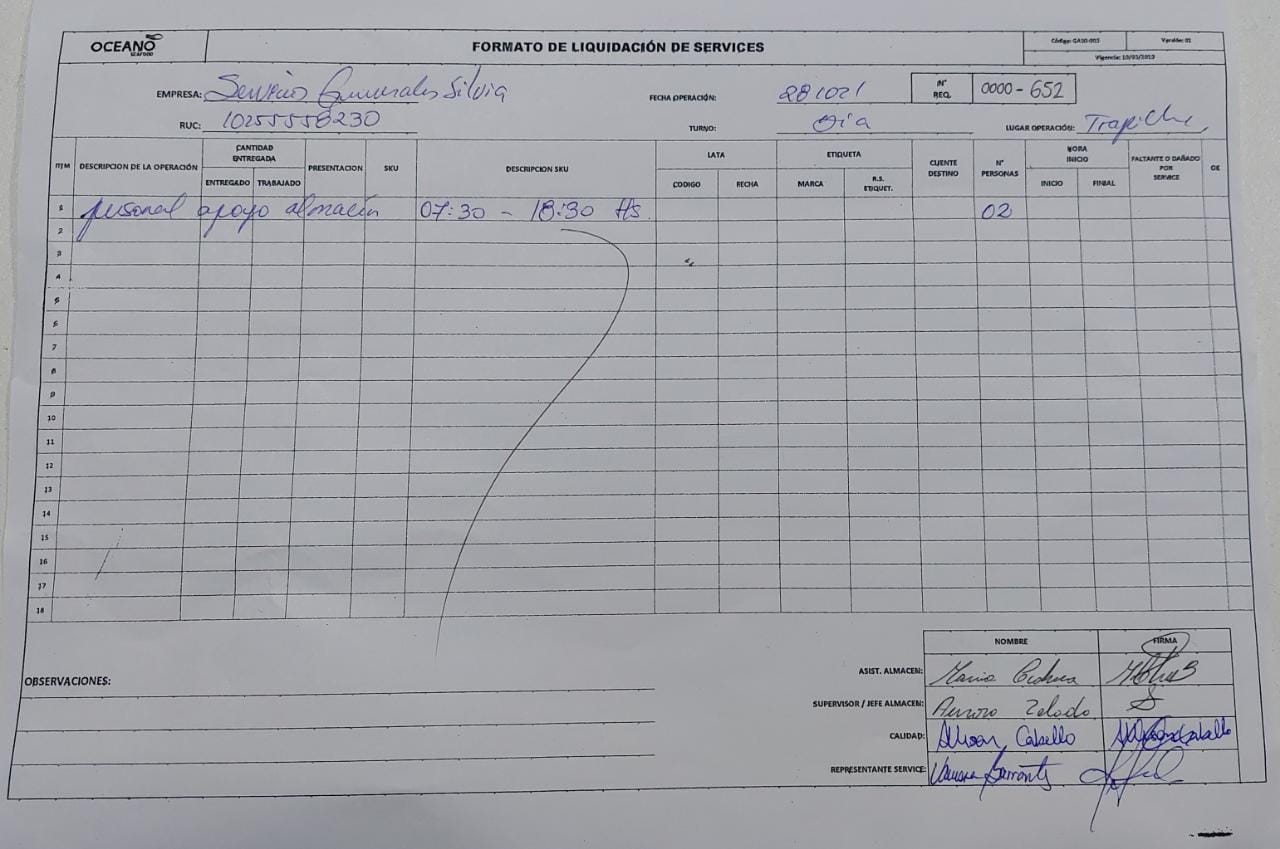 OCEANO
SEAFOOD
FORMATO DE LIQUIDACIÓN DE SERVICES
Código: GA10-003
Versión: 01
Vigencia: 10/03/2019
EMPRESA: Servicios Generales Silvia
FECHA OPERACIÓN: 281021
N° REQ. 0000-652
RUC: 10255558230
TURNO: Día
LUGAR OPERACIÓN: Trapiche
ITM DESCRIPCION DE LA OPERACIÓN CANTIDAD ENTREGADA PRESENTACION SKU DESCRIPCION SKU LATA ETIQUETA CLIENTE DESTINO N° PERSONAS HORA INICIO FALTANTE O DAÑADO POR SERVICE OE
ENTREGADO TRABAJADO CODIGO FECHA MARCA R.S. ETIQUET. INICIO FINIAL
1 personal apoyo almacén 07:30 - 18:30 Hs 02
2
3
4
5
6
7
8
9
10
11
12
13
14
15
16
17
18
OBSERVACIONES:
NOMBRE FIRMA
ASIST. ALMACEN: Maria
SUPERVISOR / JEFE ALMACEN:
CALIDAD: Alison Cabello
REPRESENTANTE SERVICE: